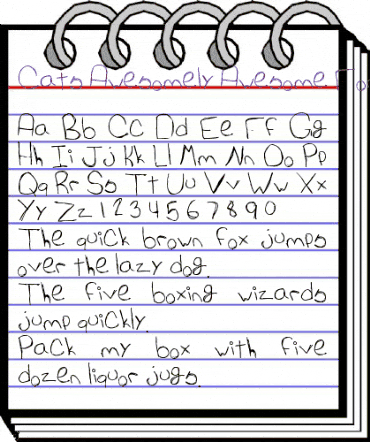 Cats Awesomely Awesome Fo
Aa Bb Cc Dd Ee Ff Gg
Hh Ii Jj Kk Ll Mm Nn Oo Pp
Qq Rr Ss Tt Uu Vv Ww Xx
Yy Zz 1 2 3 4 5 6 7 8 9 0
The quick brown fox jumps
over the lazy dog.
The five boxing wizards
jump quickly.
Pack my box with five
dozen liquor jugs.